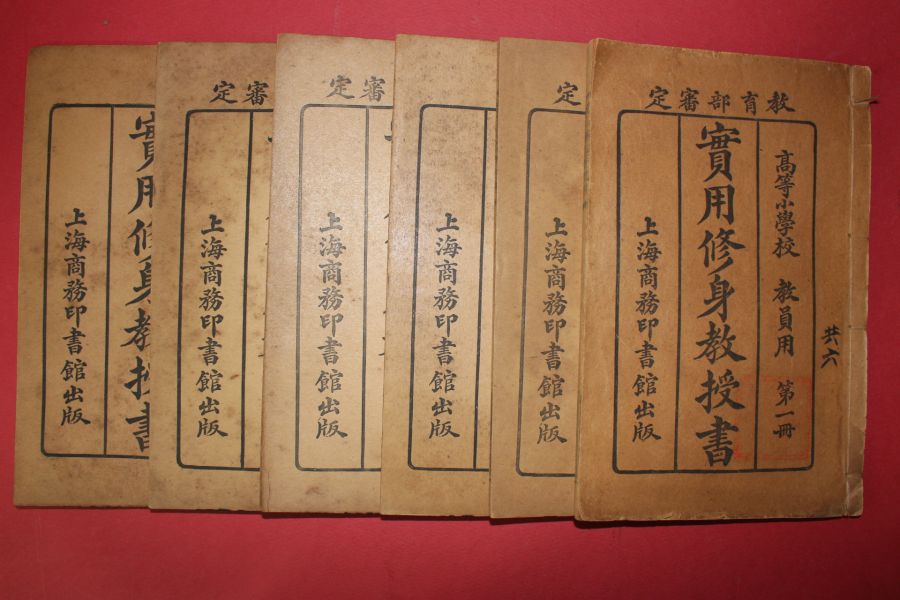 教育部審定
共六
高等小學校 教員用 第一冊
實用修身教授書
上海商務印書館出版
定
上海商務印書館出版
上海商務印書館出版
審定
上海商務印書館出版
審定
上海商務印書館出版
實用修身教授書
上海商務印書館出版